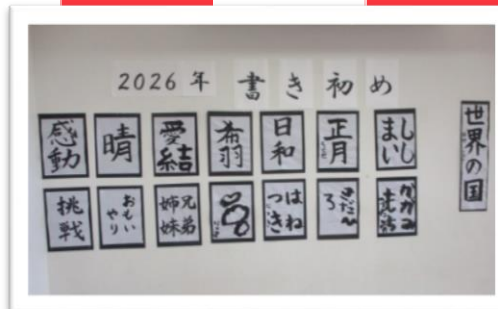 2026年 書き初め
感動
晴
愛結
希羽
日和
正月
しし
まい
世界の国
挑戦
おもい
やり
兄弟
姉妹
はね
つき